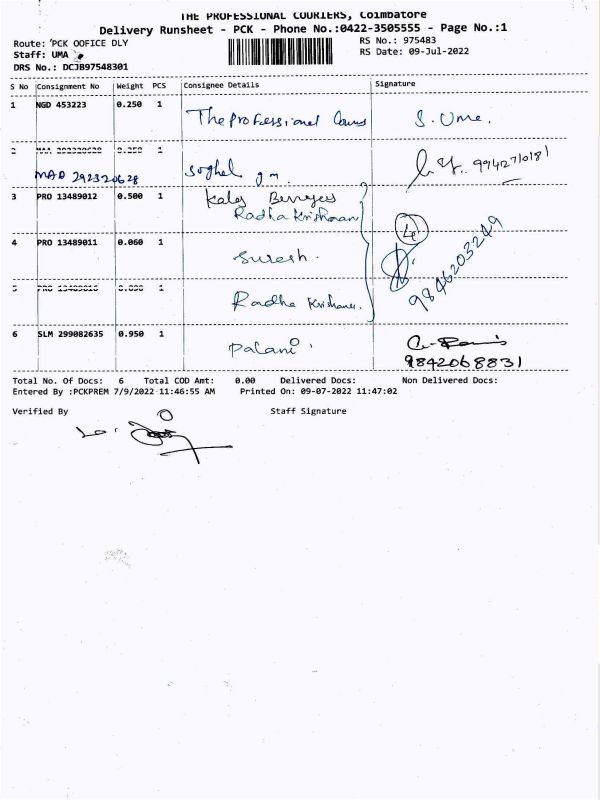 THE PROFESSIONAL COURIERS, Coimbatore
Delivery Runsheet - PCK - Phone No.:0422-3505555 - Page No.:1
Route: PCK OOFICE DLY
RS No.: 975483
Staff: UMA
RS Date: 09-Jul-2022
DRS No.: DCJB97548301
S No Consignment No Weight PCS Consignee Details Signature
1 NGD 453223 0.250 1 The professional S. Uma.
2 0.250 1
MAA 292320628 9942710181
3 PRO 13489012 0.500 1
Radha Krishnan
4
4 PRO 13489011 0.060 1 Suresh.
9846203249
5 PRO 1
Radha Krishnan.
6 SLM 299082635 0.950 1 Palani.
9842068831
Total No. Of Docs: 6 Total COD Amt: 0.00 Delivered Docs: Non Delivered Docs:
Entered By :PCKPREM 7/9/2022 11:46:55 AM Printed On: 09-07-2022 11:47:02
Verified By Staff Signature